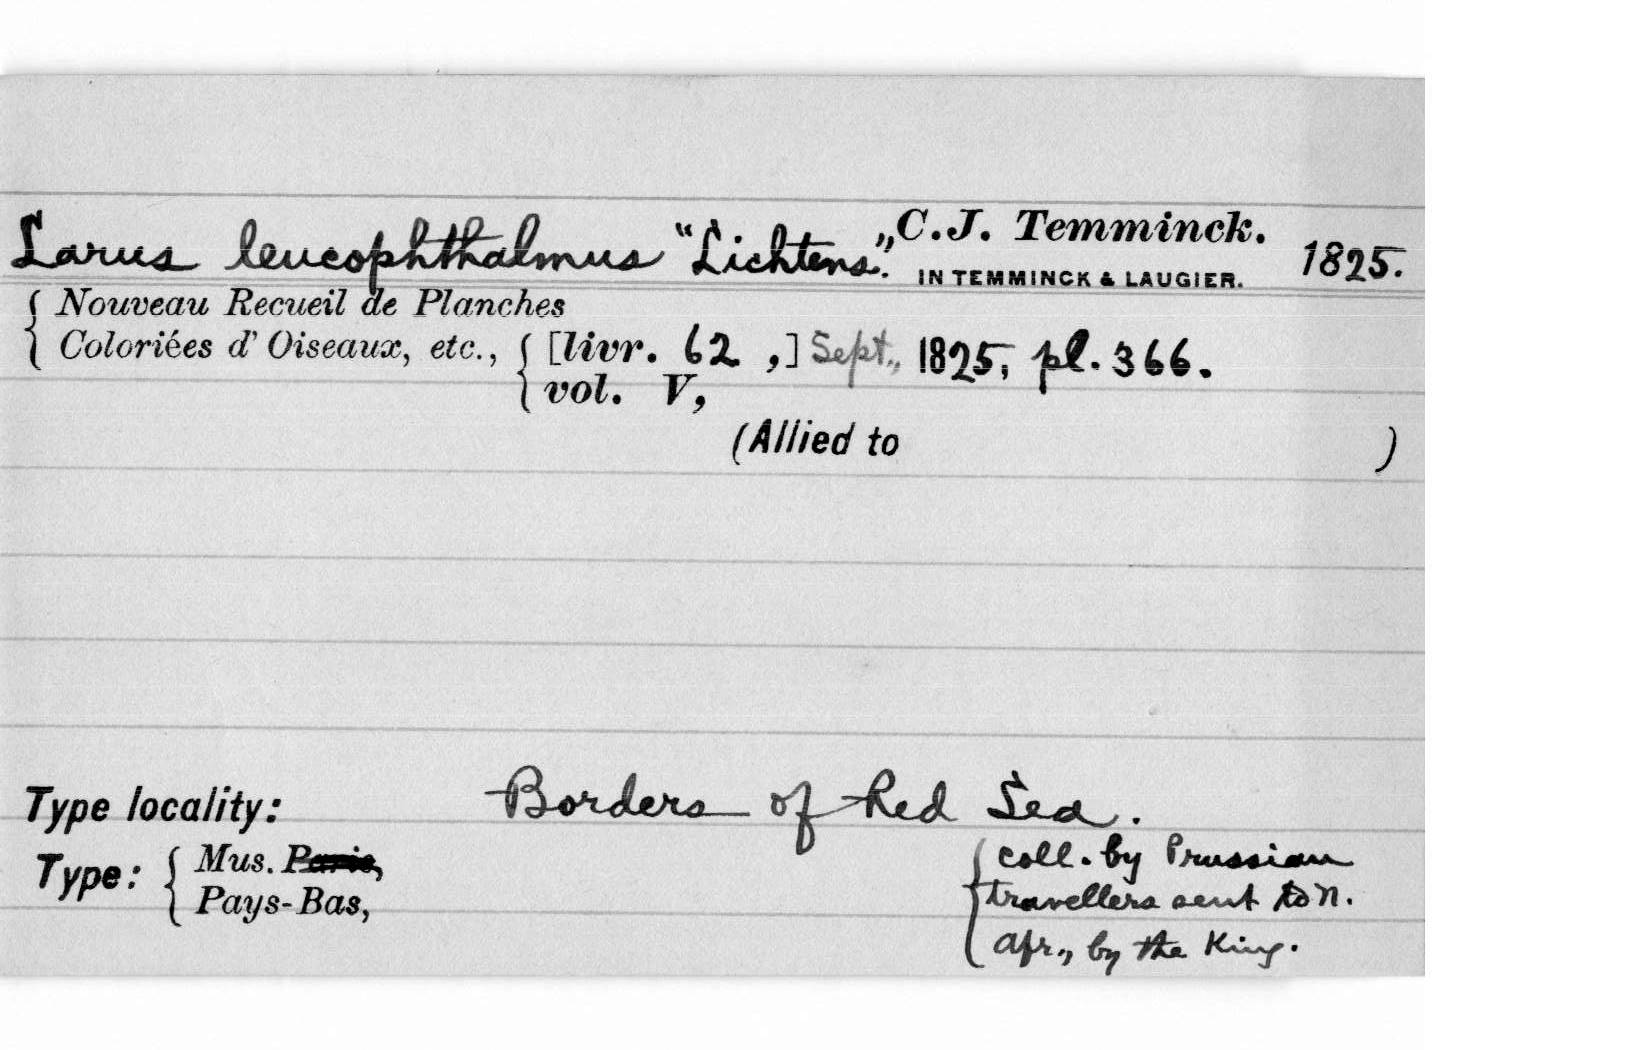 Larus leucophthalmus "Lichtens.", C.J. Temminck. 1825.
IN TEMMINCK & LAUGIER.
Nouveau Recueil de Planches
Coloriées d' Oiseaux, etc., [livr. 62 ,] Sept., 1825, pl. 366.
vol. V,
(Allied to )
Type locality: Borders of Red Sea.
Type: Mus. Paris,
Pays-Bas,
coll. by Prussian
travellers sent to N.
Afr., by the King.